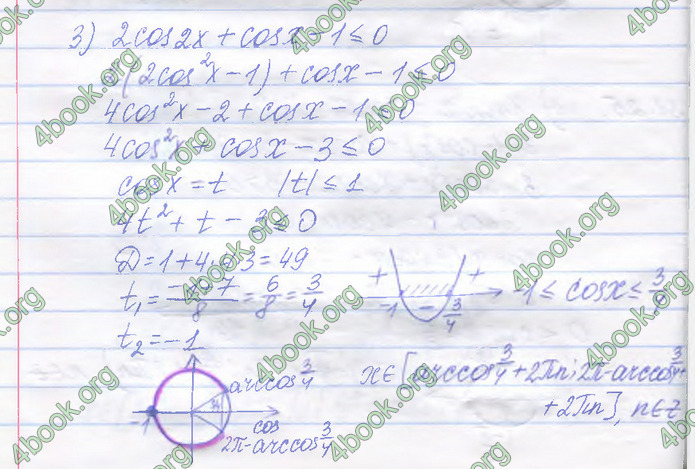 3) 2cos2x + cosx - 1 ≤ 0
2(2cos²x - 1) + cosx - 1 ≤ 0
4cos²x - 2 + cosx - 1 ≤ 0
4cos²x + cosx - 3 ≤ 0
cosx = t |t| ≤ 1
4t² + t - 3 ≤ 0
D = 1 + 4·4·3 = 49
t₁ = (-1+7)/8 = 6/8 = 3/4
+ - + -1 3/4
-1 ≤ cosx ≤ 3/4
t₂ = -1
arccos 3/4
-1 3/4 cos
2π-arccos 3/4
x ∈ [arccos 3/4 + 2πn; 2π-arccos 3/4 +
+ 2πn], n∈Z
4book.org
4book.org
4book.org
4book.org
4book.org
4book.org
4book.org
4book.org
4book.org
4book.org
4book.org
4book.org